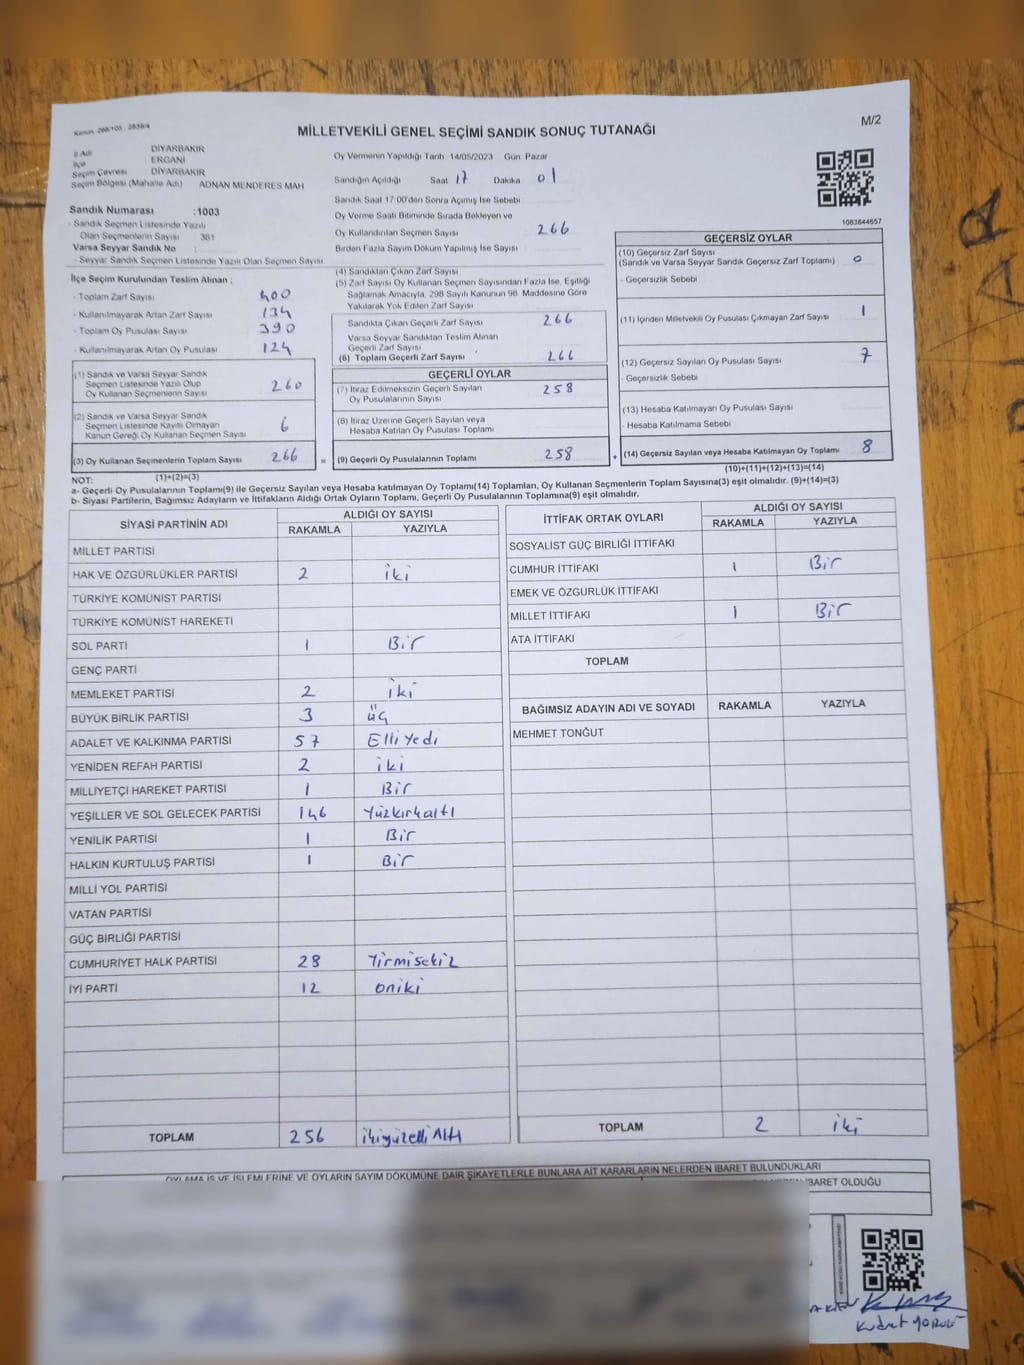 Kanun, 298/105 , 2839/4
M/2
MİLLETVEKİLİ GENEL SEÇİMİ SANDIK SONUÇ TUTANAĞI
İl Adı DİYARBAKIR
İlçe ERGANİ
Seçim Çevresi DİYARBAKIR
Seçim Bölgesi (Mahalle Adı) ADNAN MENDERES MAH
Sandık Numarası :1003
- Sandık Seçmen Listesinde Yazılı
Olan Seçmenlerin Sayısı 361
Varsa Seyyar Sandık No :
- Seyyar Sandık Seçmen Listesinde Yazılı Olan Seçmen Sayısı
Oy Vermenin Yapıldığı Tarih 14/05/2023 Gün Pazar
Sandığın Açıldığı Saat 17 Dakika 01
Sandık Saat 17:00'den Sonra Açımış İse Sebebi
Oy Verme Saati Bitiminde Sırada Bekleyen ve
Oy Kullandırılan Seçmen Sayısı 266
Birden Fazla Sayım Döküm Yapılmış İse Sayısı
1083644657
İlçe Seçim Kurulundan Teslim Alınan ;
- Toplam Zarf Sayısı 400
- Kullanılmayarak Artan Zarf Sayısı 134
- Toplam Oy Pusulası Sayısı 390
- Kullanılmayarak Artan Oy Pusulası 124
(1) Sandık ve Varsa Seyyar Sandık
Seçmen Listesinde Yazılı Olup
Oy Kullanan Seçmenlerin Sayısı 260
(2) Sandık ve Varsa Seyyar Sandık
Seçmen Listesinde Kayıtlı Olmayan
Kanun Gereği Oy Kullanan Seçmen Sayısı 6
(3) Oy Kullanan Seçmenlerin Toplam Sayısı 266 =
(1)+(2)=(3)
(4) Sandıktan Çıkan Zarf Sayısı
(5) Zarf Sayısı Oy Kullanan Seçmen Sayısından Fazla İse, Eşitliği
Sağlamak Amacıyla, 298 Sayılı Kanunun 98 Maddesine Göre
Yakılarak Yok Edilen Zarf Sayısı
Sandıkta Çıkan Geçerli Zarf Sayısı 266
Varsa Seyyar Sandıktan Teslim Alınan
Geçerli Zarf Sayısı
(6) Toplam Geçerli Zarf Sayısı 266
GEÇERLİ OYLAR
(7) İtiraz Edilmeksizin Geçerli Sayılan
Oy Pusulalarının Sayısı 258
(8) İtiraz Üzerine Geçerli Sayılan veya
Hesaba Katılan Oy Pusulası Toplamı
(9) Geçerli Oy Pusulalarının Toplamı 258 +
GEÇERSİZ OYLAR
(10) Geçersiz Zarf Sayısı
(Sandık ve Varsa Seyyar Sandık Geçersiz Zarf Toplamı) 0
- Geçersizlik Sebebi
(11) İçinden Milletvekili Oy Pusulası Çıkmayan Zarf Sayısı 1
(12) Geçersiz Sayılan Oy Pusulası Sayısı 7
- Geçersizlik Sebebi
(13) Hesaba Katılmayan Oy Pusulası Sayısı
- Hesaba Katılmama Sebebi
(14) Geçersiz Sayılan veya Hesaba Katılmayan Oy Toplamı 8
(10)+(11)+(12)+(13)=(14)
NOT:
a- Geçerli Oy Pusulalarının Toplamı(9) ile Geçersiz Sayılan veya Hesaba katılmayan Oy Toplamı(14) Toplamları, Oy Kullanan Seçmenlerin Toplam Sayısına(3) eşit olmalıdır. (9)+(14)=(3)
b- Siyasi Partilerin, Bağımsız Adayların ve İttifakların Aldığı Ortak Oyların Toplamı, Geçerli Oy Pusulalarının Toplamına(9) eşit olmalıdır.
SİYASİ PARTİNİN ADI ALDIĞI OY SAYISI
RAKAMLA YAZIYLA
MİLLET PARTİSİ
HAK VE ÖZGÜRLÜKLER PARTİSİ 2 iki
TÜRKİYE KOMÜNİST PARTİSİ
TÜRKİYE KOMÜNİST HAREKETİ
SOL PARTİ 1 Bir
GENÇ PARTİ
MEMLEKET PARTİSİ 2 iki
BÜYÜK BİRLİK PARTİSİ 3 üç
ADALET VE KALKINMA PARTİSİ 57 Elli Yedi
YENİDEN REFAH PARTİSİ 2 iki
MİLLİYETÇİ HAREKET PARTİSİ 1 Bir
YEŞİLLER VE SOL GELECEK PARTİSİ 146 Yüzkırkaltı
YENİLİK PARTİSİ 1 Bir
HALKIN KURTULUŞ PARTİSİ 1 Bir
MİLLİ YOL PARTİSİ
VATAN PARTİSİ
GÜÇ BİRLİĞİ PARTİSİ
CUMHURİYET HALK PARTİSİ 28 Yirmisekiz
İYİ PARTİ 12 oniki
TOPLAM 256 ikiyüzelli Altı
İTTİFAK ORTAK OYLARI ALDIĞI OY SAYISI
RAKAMLA YAZIYLA
SOSYALİST GÜÇ BİRLİĞİ İTTİFAKI
CUMHUR İTTİFAKI 1 Bir
EMEK VE ÖZGÜRLÜK İTTİFAKI
MİLLET İTTİFAKI 1 Bir
ATA İTTİFAKI
TOPLAM
BAĞIMSIZ ADAYIN ADI VE SOYADI RAKAMLA YAZIYLA
MEHMET TONĞUT
TOPLAM 2 iki
OYLAMA İŞ VE İŞLEMLERİNE VE OYLARIN SAYIM DÖKÜMÜNE DAİR ŞİKAYETLERLE BUNLARA AİT KARARLARIN NELERDEN İBARET BULUNDUKLARI
İBARET OLDUĞU